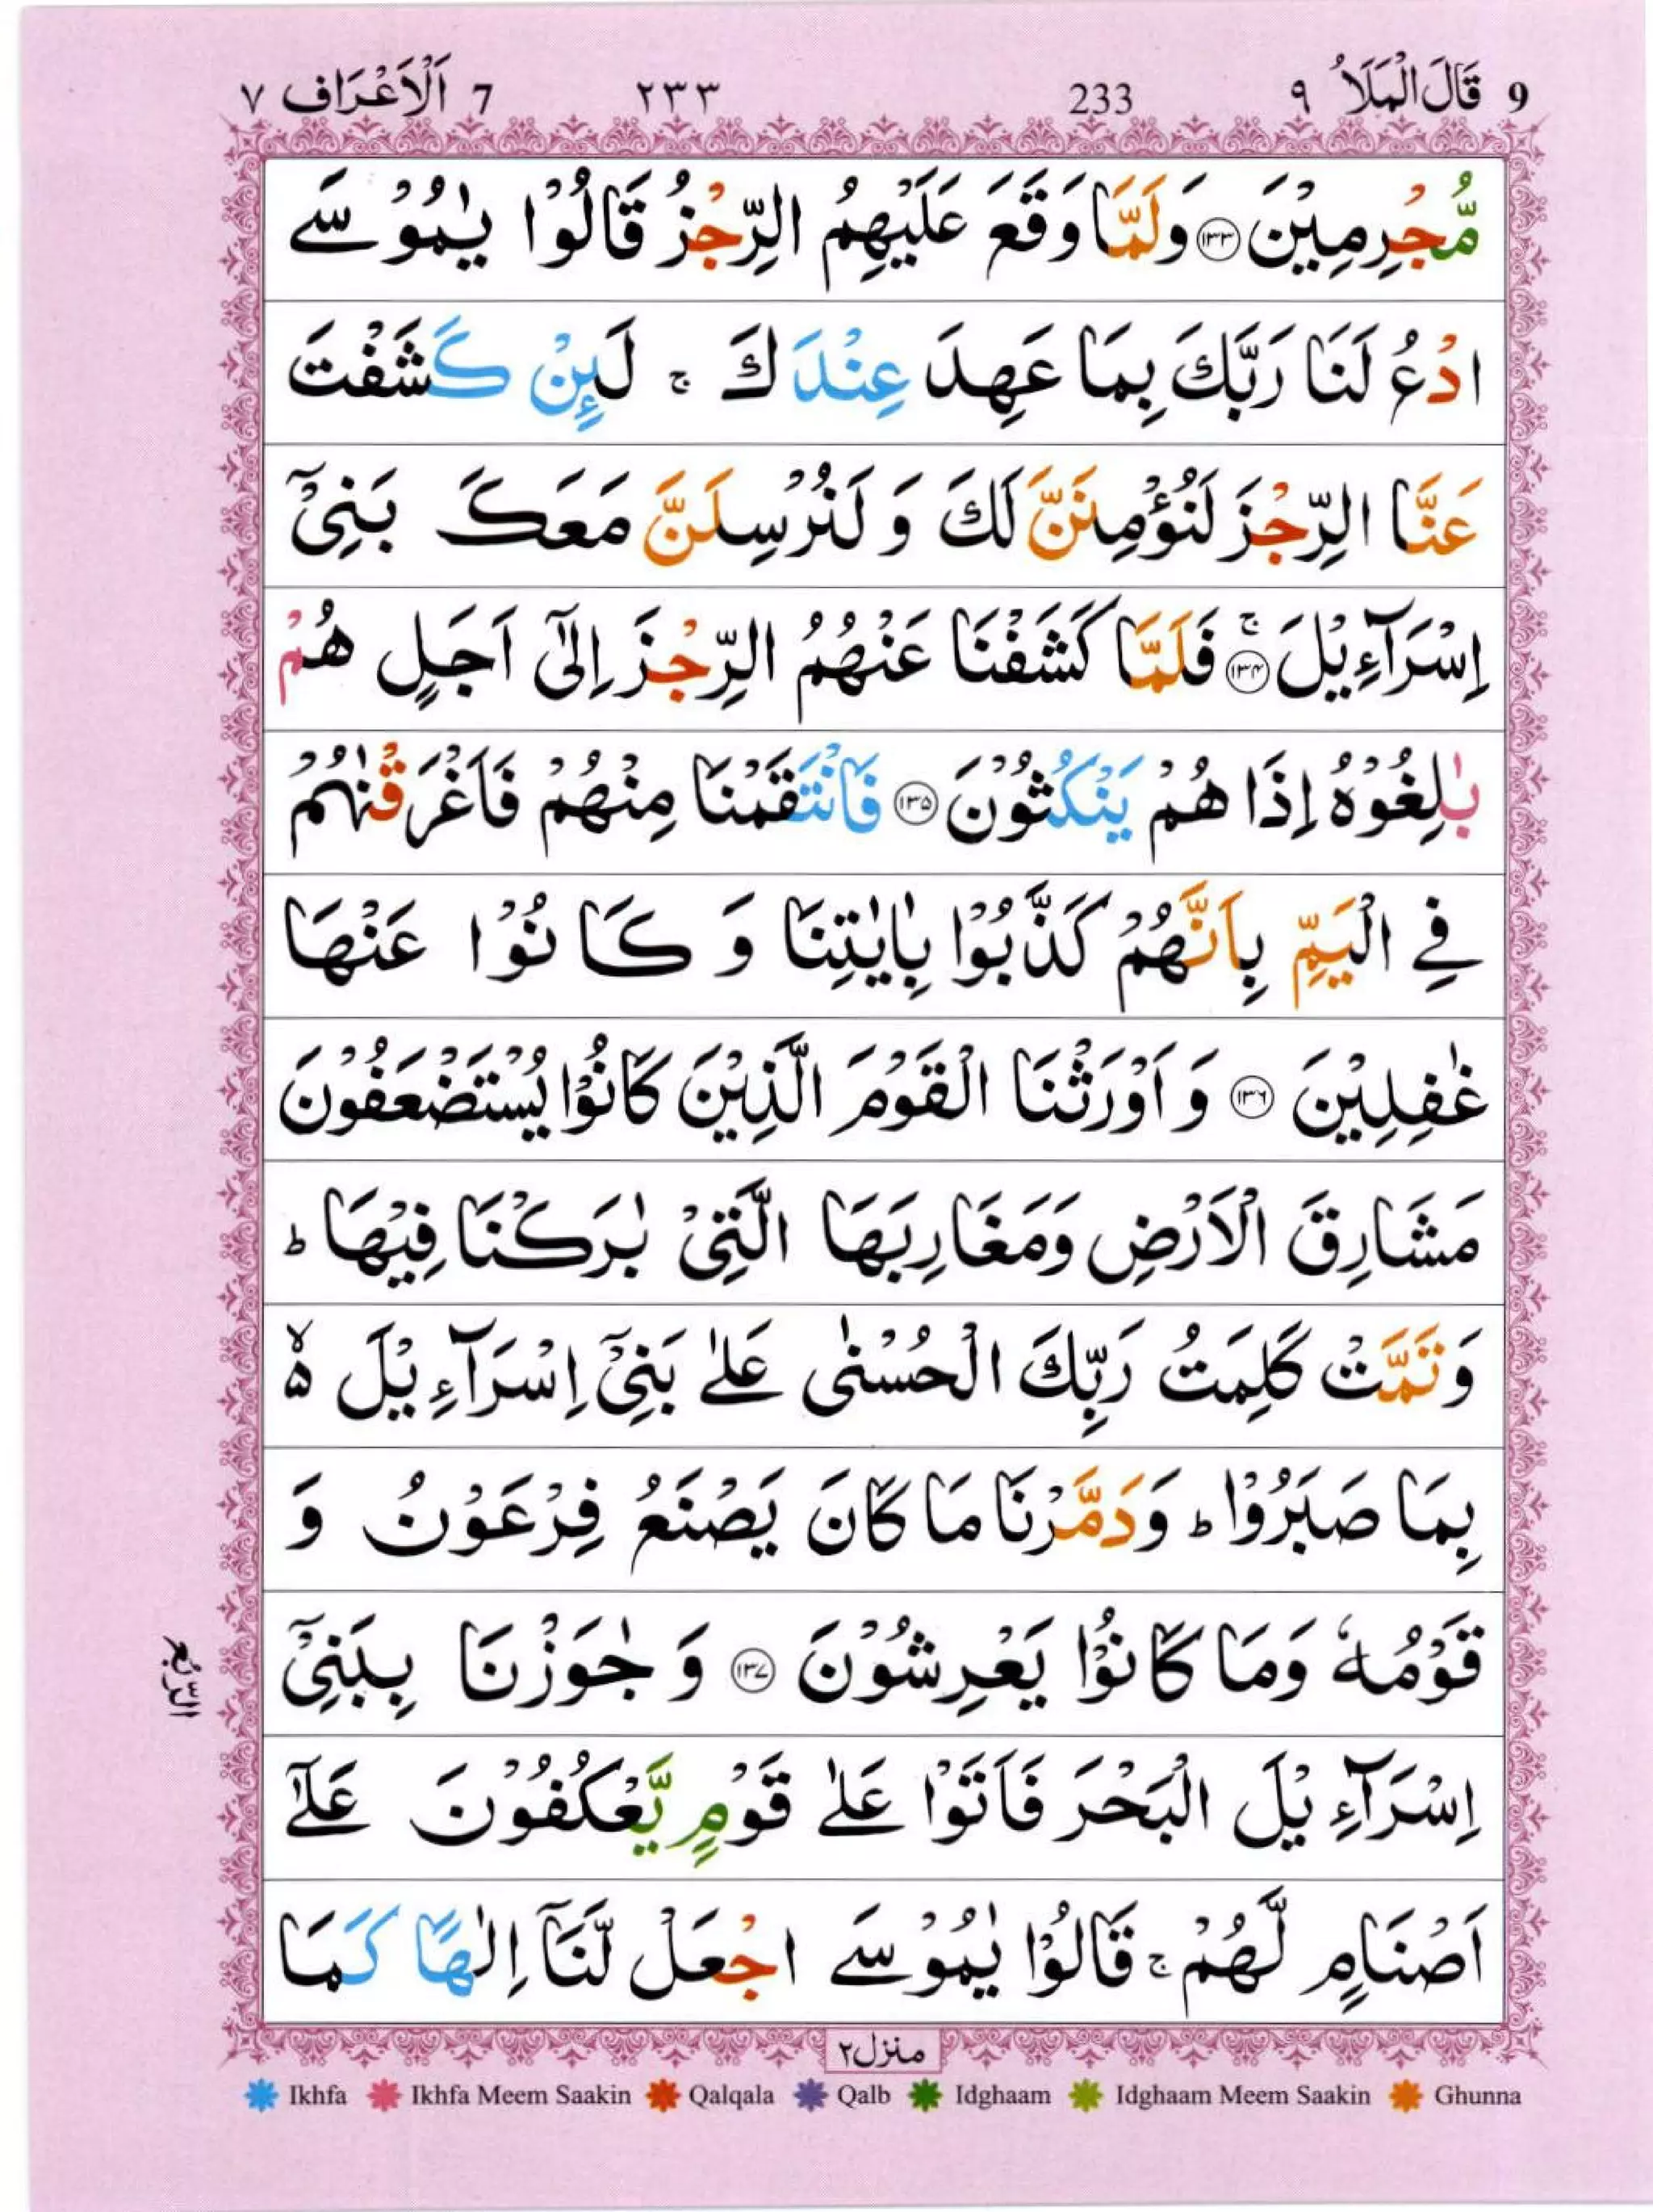 9 قَالَ الْمَلَاُ ٩ 233 ٢٣٣ 7 اَلْاَعْرَاف ٧
مُّجْرِمِيْنَ ۝١٣٣ وَلَمَّا وَقَعَ عَلَيْهِمُ الرِّجْزُ قَالُوْا يٰمُوْسَى
ادْعُ لَنَا رَبَّكَ بِمَا عَهِدَ عِنْدَكَ ۚ لَىِٕنْ كَشَفْتَ
عَنَّا الرِّجْزَ لَنُؤْمِنَنَّ لَكَ وَ لَنُرْسِلَنَّ مَعَكَ بَنِيْۤ
اِسْرَآءِيْلَ ۚ۝١٣٤ فَلَمَّا كَشَفْنَا عَنْهُمُ الرِّجْزَ اِلٰۤى اَجَلٍ هُمْ
بٰلِغُوْهُ اِذَا هُمْ يَنْكُثُوْنَ ۝١٣٥ فَانْتَقَمْنَا مِنْهُمْ فَاَغْرَقْنٰهُمْ
فِي الْيَمِّ بِاَنَّهُمْ كَذَّبُوْا بِاٰيٰتِنَا وَ كَانُوْا عَنْهَا
غٰفِلِيْنَ ۝١٣٦ وَ اَوْرَثْنَا الْقَوْمَ الَّذِيْنَ كَانُوْا يُسْتَضْعَفُوْنَ
مَشَارِقَ الْاَرْضِ وَمَغَارِبَهَا الَّتِيْ بٰرَكْنَا فِيْهَا ؕ
وَتَمَّتْ كَلِمَتُ رَبِّكَ الْحُسْنٰى عَلٰى بَنِيْۤ اِسْرَآءِيْلَ ۙ۬
بِمَا صَبَرُوْا ؕ وَدَمَّرْنَا مَا كَانَ يَصْنَعُ فِرْعَوْنُ وَ
قَوْمُهٗ وَمَا كَانُوْا يَعْرِشُوْنَ ۝١٣٧ وَ جٰوَزْنَا بِبَنِيْۤ
اِسْرَآءِيْلَ الْبَحْرَ فَاَتَوْا عَلٰى قَوْمٍ يَّعْكُفُوْنَ عَلٰۤى
اَصْنَامٍ لَّهُمْ ۚ قَالُوْا يٰمُوْسَى اجْعَلْ لَّنَاۤ اِلٰهًا كَمَا
الرّبع
منزل ٢
Ikhfa Ikhfa Meem Saakin Qalqala Qalb Idghaam Idghaam Meem Saakin Ghunna